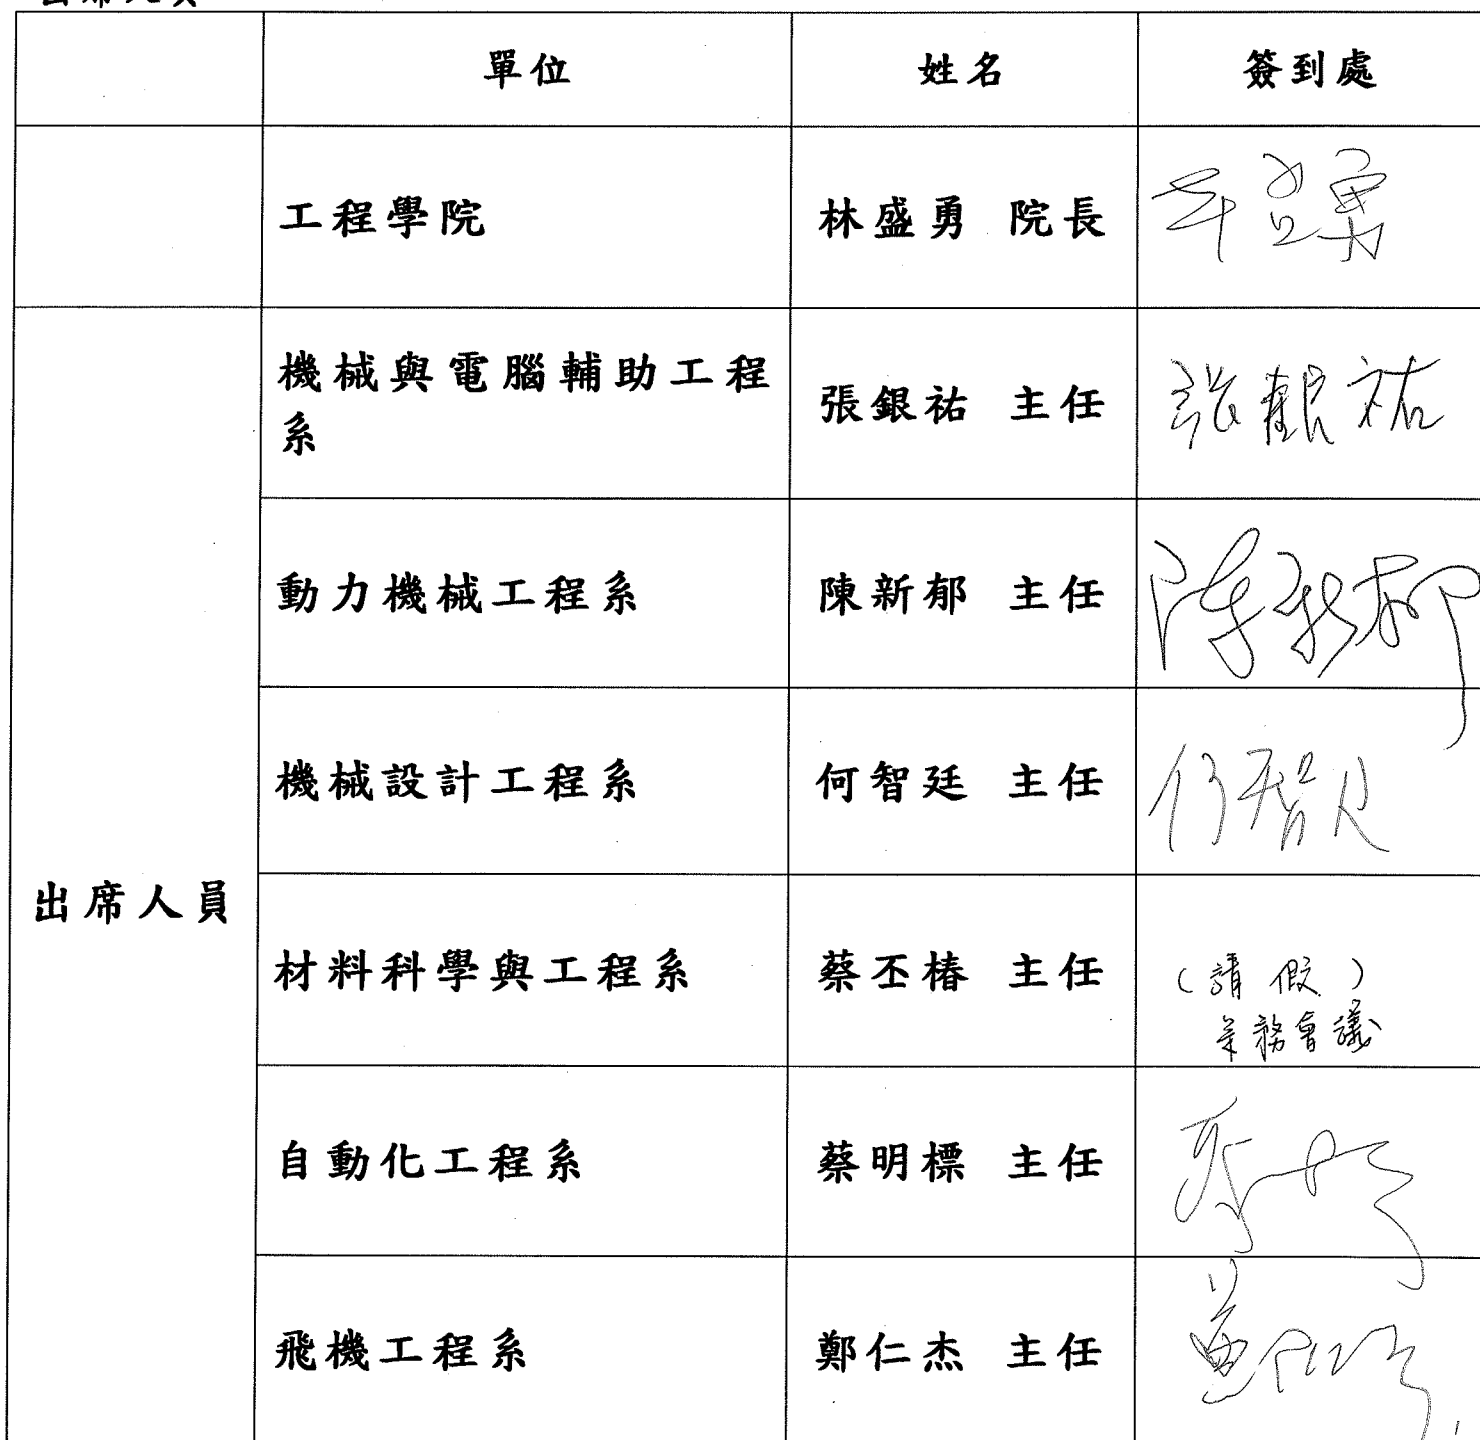 出席人員
單位 姓名 簽到處
工程學院 林盛勇 院長
機械與電腦輔助工程
系
張銀祐 主任 張銀祐
動力機械工程系 陳新郁 主任 陳新郁
機械設計工程系 何智廷 主任 何智廷
出席人員
材料科學與工程系 蔡丕椿 主任 (請假)
業務會議
自動化工程系 蔡明標 主任
飛機工程系 鄭仁杰 主任